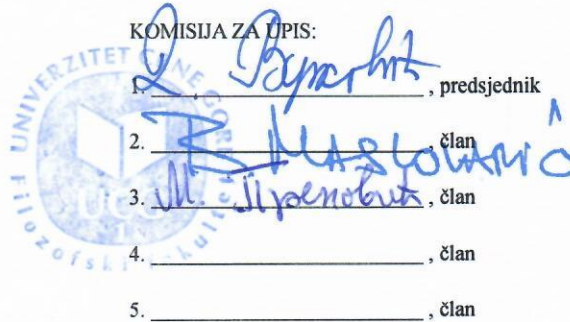 KOMISIJA ZA UPIS:
1. , predsjednik
2. B MASLOVARIĆ , član
3. M. , član
4. , član
5. , član
UNIVERZITET CRNE GORE
Filozofski fakultet
UCG